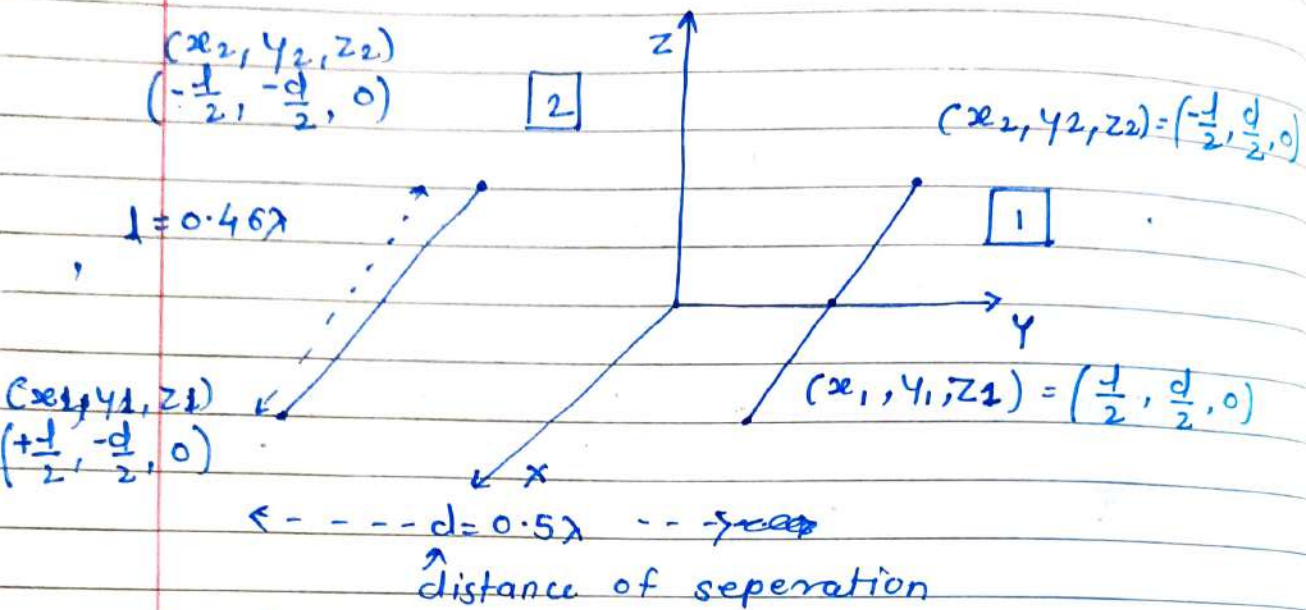 (x2, y2, z2)
(-l/2, -d/2, 0)
2
Z
(x2, y2, z2) = (-l/2, d/2, 0)
l = 0.46λ
1
Y
(x1, y1, z1)
(+l/2, -d/2, 0)
(x1, y1, z1) = (l/2, d/2, 0)
X
d = 0.5λ
distance of seperation